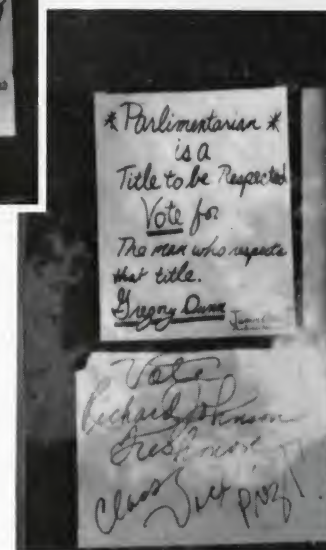 * Parlimentarian *
is a
Title to be Respected
Vote for
The man who respects
that title.
Gregory Dunn
Vote
Richard Johnson
Freshmen
Class Vice